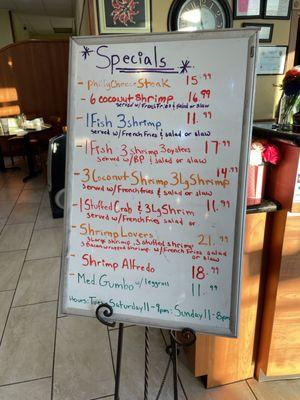 * Specials *
- Philly Cheese Steak 15.99
- 6 coconut shrimp 16.99
served w/French Fries & salad or slaw
- 1 Fish 3 shrimp 11.99
served w/French Fries & salad or slaw
- 1 Fish 3 shrimp 3 oysters 17.99
served w/BP & salad or slaw
- 3 Coconut Shrimp 3 Lg Shrimp 14.99
served w/French fries & salad or slaw
- 1 Stuffed Crab & 3 Lg Shrim 11.99
served w/French fries & salad or slaw
- Shrimp Lovers 21.99
3 Large shrimp, 3 stuffed shrimp
w/French fries & salad or slaw
- Shrimp Alfredo 18.99
- Med. Gumbo w/1 eggroll 11.99
Hours: Tues-Saturday 11-9pm. Sunday 11-8pm